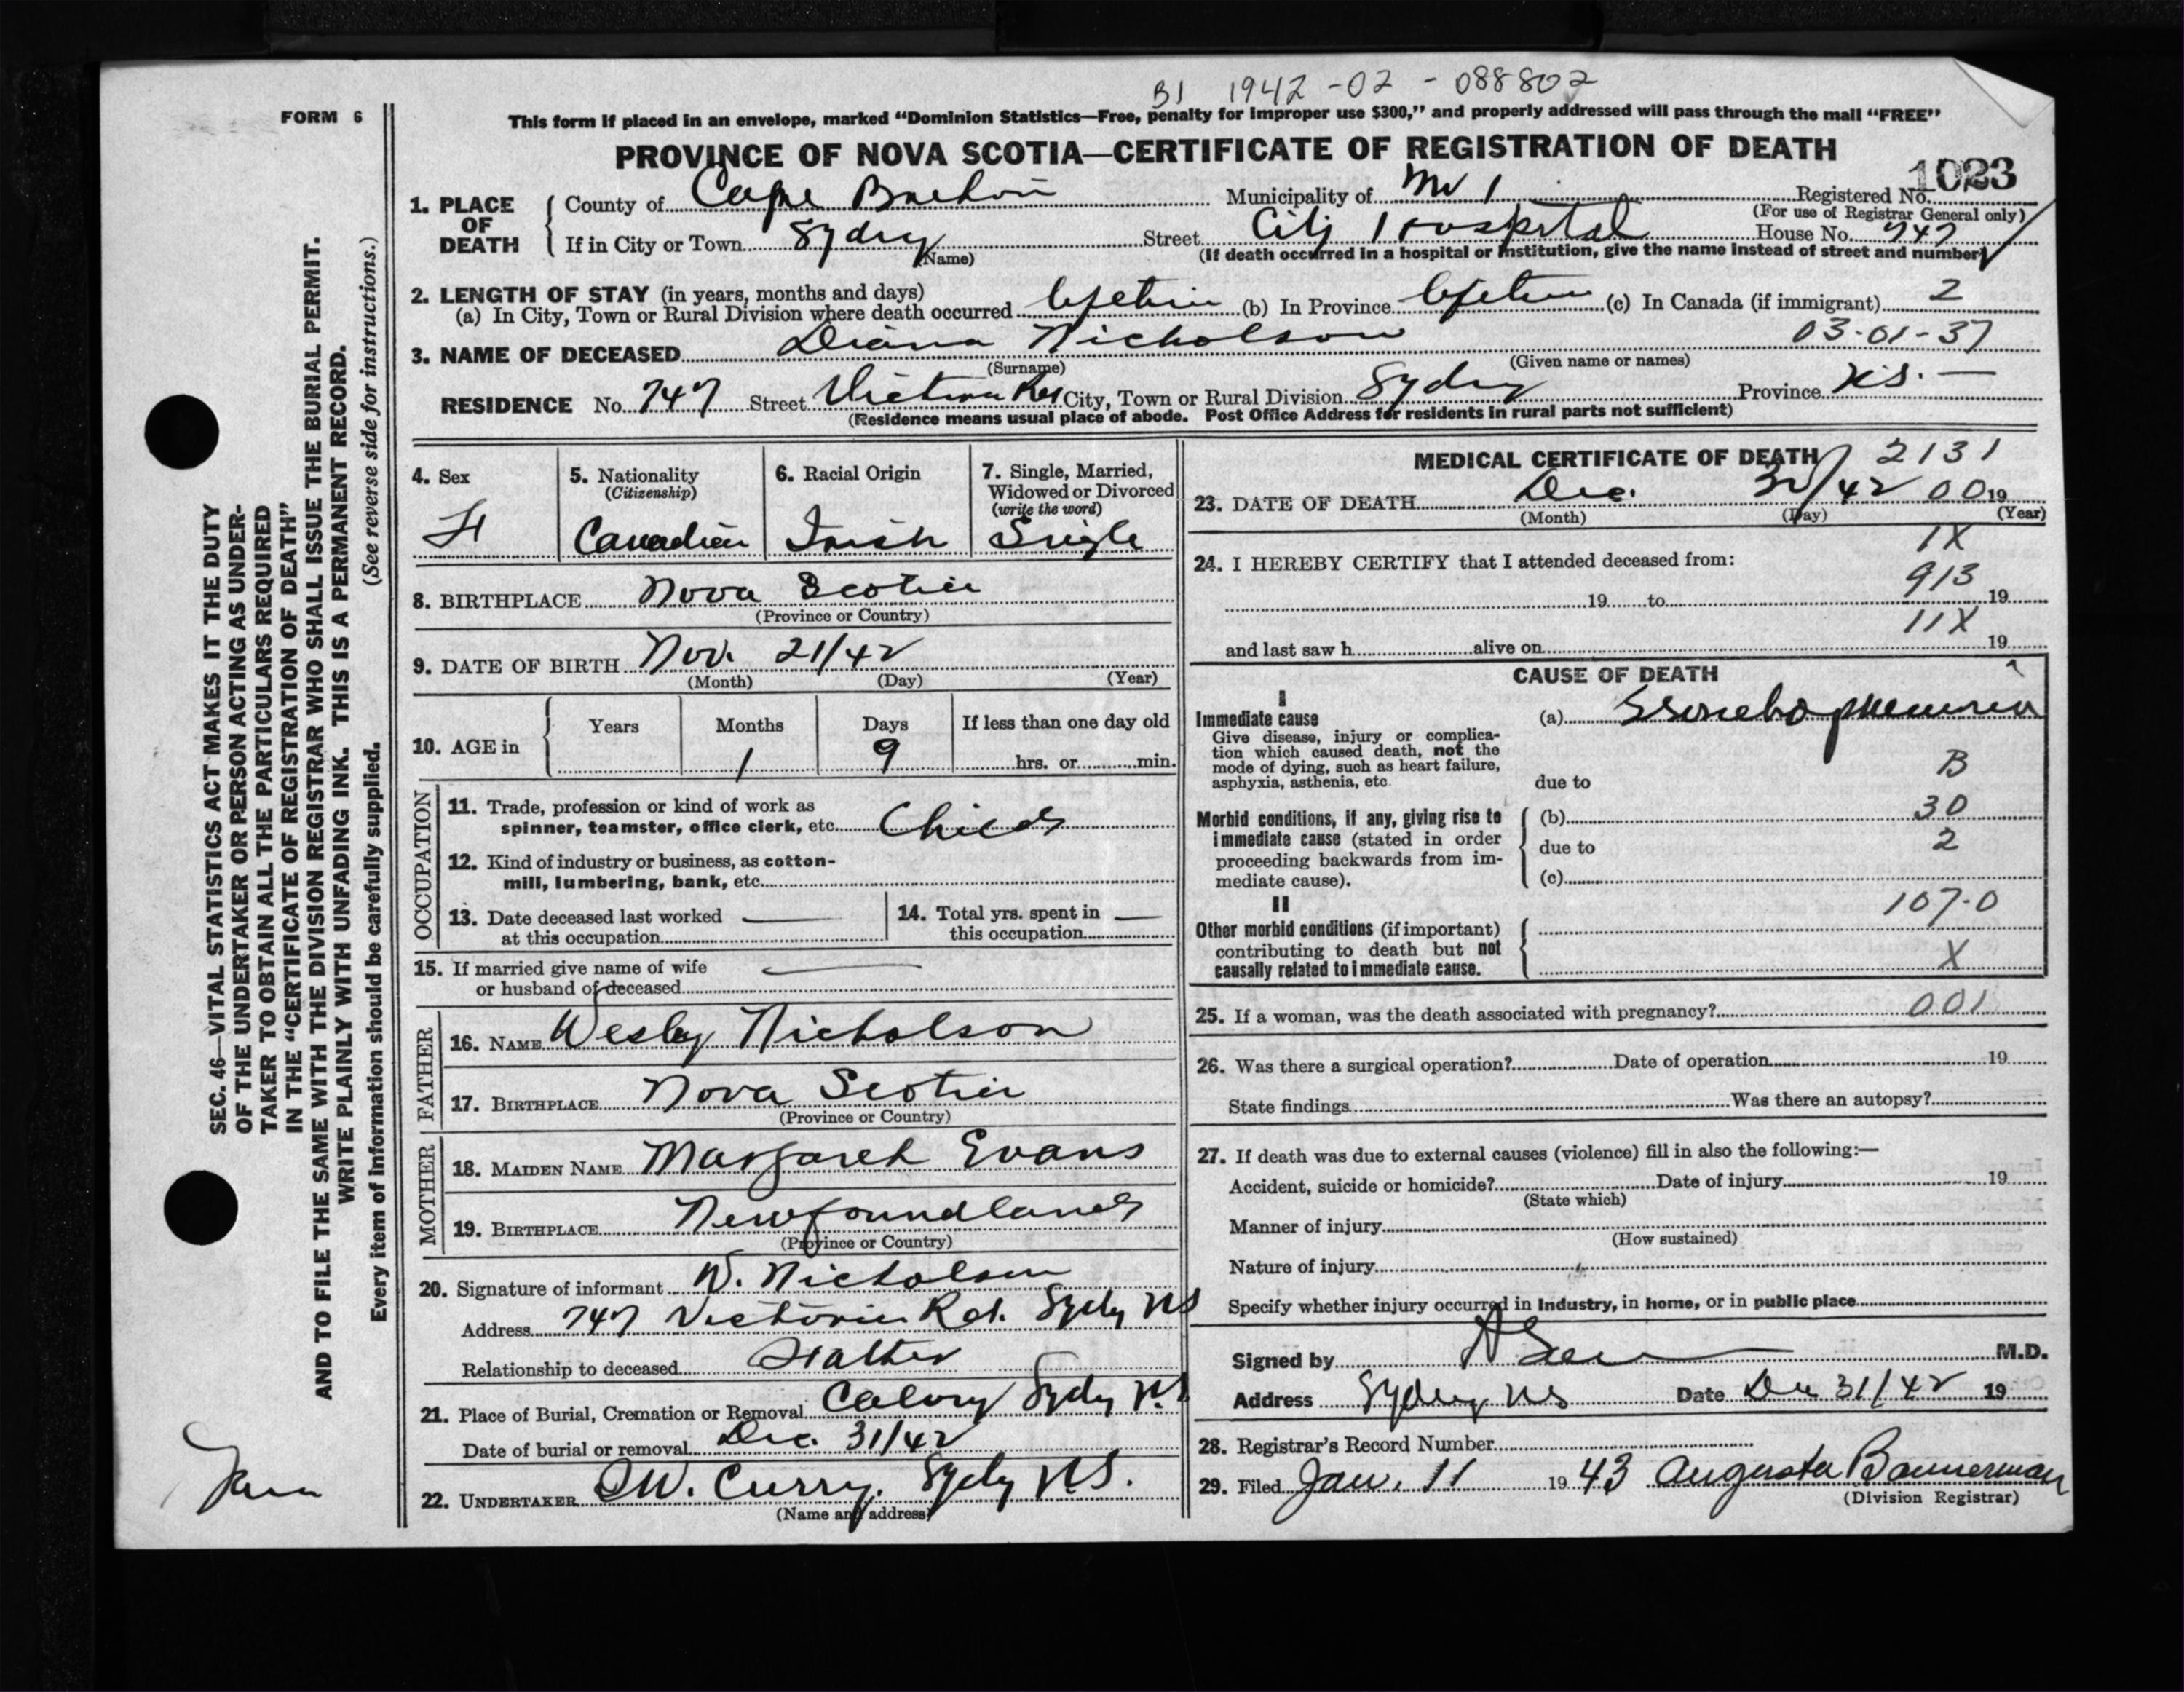 B1 1942-02-088802
FORM 6
This form if placed in an envelope, marked "Dominion Statistics—Free, penalty for improper use $300," and properly addressed will pass through the mail "FREE"
PROVINCE OF NOVA SCOTIA—CERTIFICATE OF REGISTRATION OF DEATH
1. PLACE OF DEATH
County of Cape Breton Municipality of No 1 Registered No. 1023
(For use of Registrar General only)
If in City or Town Sydney Street City Hospital House No. 747
(Name) (If death occurred in a hospital or institution, give the name instead of street and number)
2. LENGTH OF STAY (in years, months and days)
(a) In City, Town or Rural Division where death occurred lifetime (b) In Province lifetime (c) In Canada (if immigrant) 2
3. NAME OF DECEASED Diana Nicholson 03-01-37
(Surname) (Given name or names)
RESIDENCE No. 747 Street Victoria Rd City, Town or Rural Division Sydney Province N.S. —
(Residence means usual place of abode. Post Office Address for residents in rural parts not sufficient)
4. Sex F
5. Nationality (Citizenship) Canadian
6. Racial Origin Irish
7. Single, Married, Widowed or Divorced (write the word) Single
8. BIRTHPLACE Nova Scotia
(Province or Country)
9. DATE OF BIRTH Nov. 21/42
(Month) (Day) (Year)
10. AGE in Years Months 1 Days 9 If less than one day old hrs. or min.
OCCUPATION
11. Trade, profession or kind of work as spinner, teamster, office clerk, etc. Child
12. Kind of industry or business, as cotton-mill, lumbering, bank, etc.
13. Date deceased last worked at this occupation —
14. Total yrs. spent in this occupation —
15. If married give name of wife or husband of deceased —
FATHER
16. NAME Wesley Nicholson
17. BIRTHPLACE Nova Scotia
(Province or Country)
MOTHER
18. MAIDEN NAME Margaret Evans
19. BIRTHPLACE Newfoundland
(Province or Country)
20. Signature of informant W. Nicholson
Address 747 Victoria Rd. Sydney NS
Relationship to deceased Father
21. Place of Burial, Cremation or Removal Calvary Sydney N.S
Date of burial or removal Dec. 31/42
22. UNDERTAKER W. Curry. Sydney N.S.
(Name and address)
MEDICAL CERTIFICATE OF DEATH 2131
23. DATE OF DEATH Dec. 30/42 00 19
(Month) (Day) (Year)
1X
24. I HEREBY CERTIFY that I attended deceased from:
19 to 913 19
11X
and last saw h alive on 19
CAUSE OF DEATH
I
Immediate cause
Give disease, injury or complication which caused death, not the mode of dying, such as heart failure, asphyxia, asthenia, etc.
(a) Bronchopneumonia
due to B
Morbid conditions, if any, giving rise to immediate cause (stated in order proceeding backwards from immediate cause).
(b) 30
due to 2
(c)
II
107-0
Other morbid conditions (if important) contributing to death but not causally related to immediate cause.
X
25. If a woman, was the death associated with pregnancy? 001
26. Was there a surgical operation? Date of operation 19
State findings Was there an autopsy?
27. If death was due to external causes (violence) fill in also the following:—
Accident, suicide or homicide? Date of injury 19
(State which)
Manner of injury
(How sustained)
Nature of injury
Specify whether injury occurred in Industry, in home, or in public place
Signed by M.D.
Address Sydney, NS Date Dec 31/42 19
28. Registrar's Record Number
29. Filed Jan. 11 1943 Augusta Bannerman
(Division Registrar)
SEC. 46—VITAL STATISTICS ACT MAKES IT THE DUTY
OF THE UNDERTAKER OR PERSON ACTING AS UNDER-
TAKER TO OBTAIN ALL THE PARTICULARS REQUIRED
IN THE "CERTIFICATE OF REGISTRATION OF DEATH"
AND TO FILE THE SAME WITH THE DIVISION REGISTRAR WHO SHALL ISSUE THE BURIAL PERMIT.
WRITE PLAINLY WITH UNFADING INK. THIS IS A PERMANENT RECORD.
Every item of information should be carefully supplied. (See reverse side for instructions.)